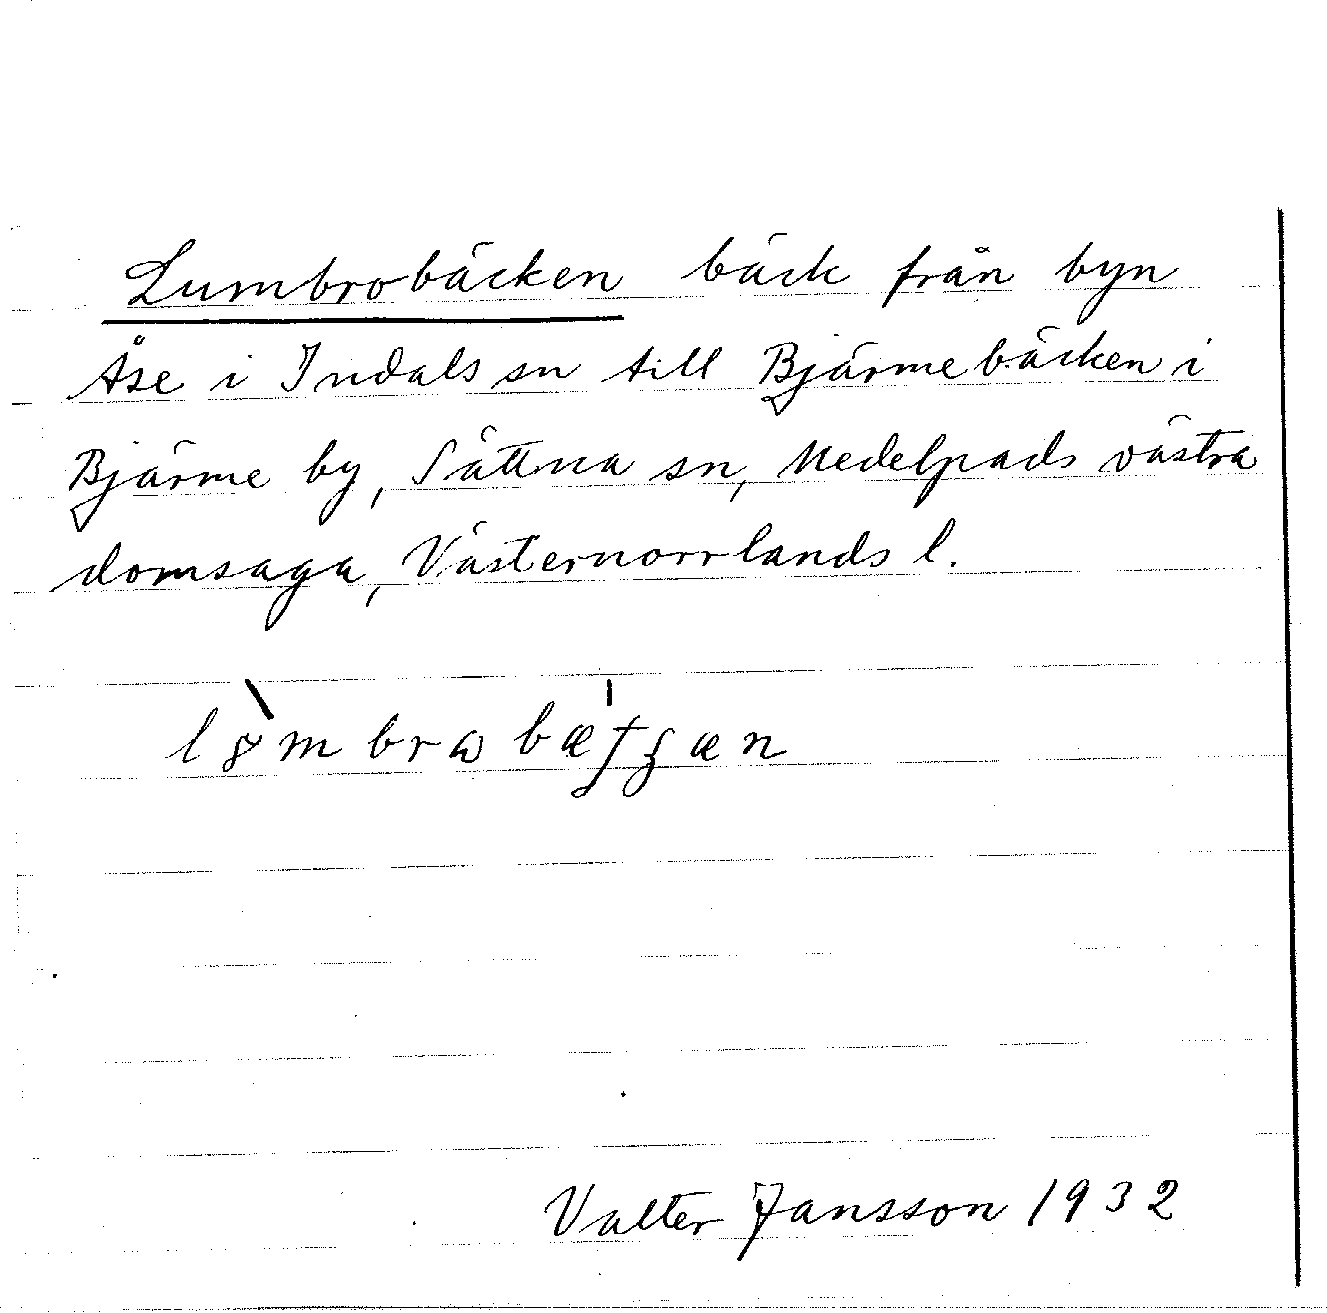 Lumbrobäcken bäck från byn
Åse i Indals sn till Bjärmebäcken i
Bjärme by, Sättna sn, Medelpads västra
domsaga, Västernorrlands l.
Valter Jansson 1932